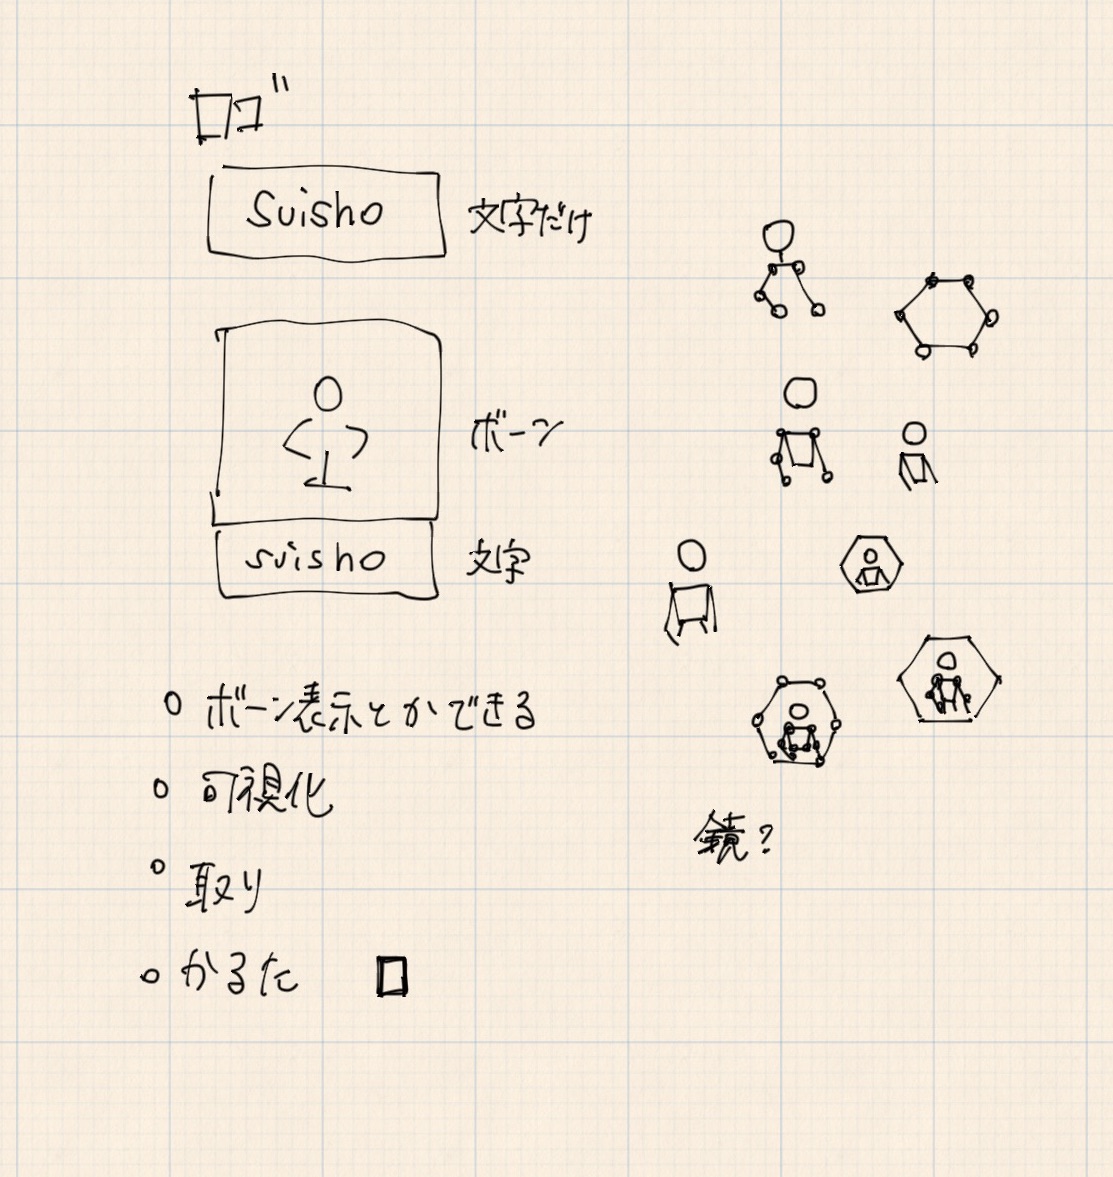 ロゴ
Suisho
文字だけ
ボーン
suisho
文字
ボーン表示とかできる
可視化
取り
かるた
鏡?